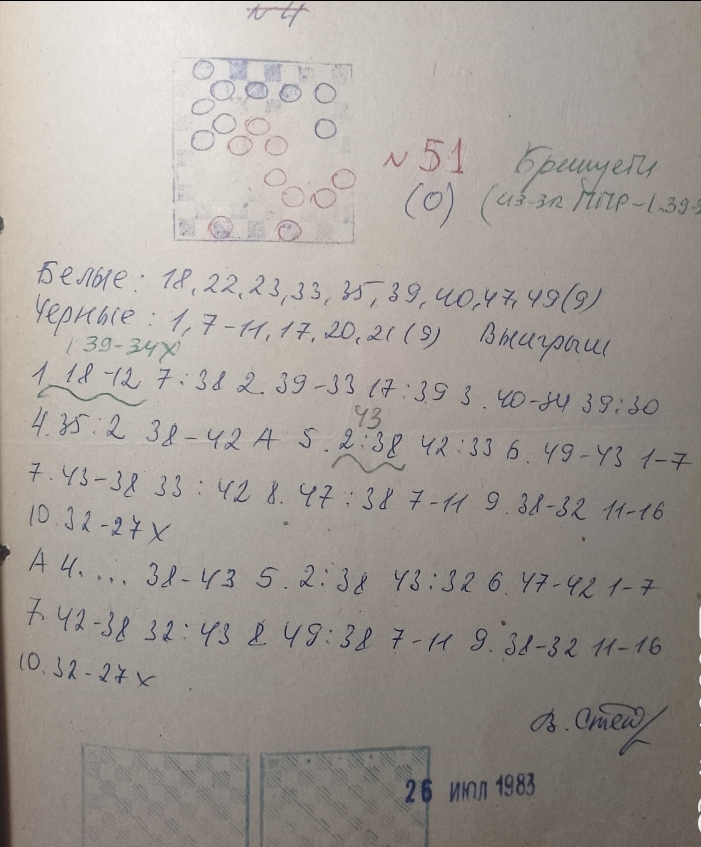 №4
№51
(0)
(из-за ППР-1.39-
Белые: 18,22,23,33,35,39,40,47,49(9)
Черные: 1,7-11,17,20,21(9) Выигрыш
1 39-34X
1. 18-12 7:38 2. 39-33 17:39 3. 40-34 39:30
43
4. 35:2 38-42 A 5. 2:38 42:33 6. 49-43 1-7
7. 43-38 33:42 8. 47:38 7-11 9. 38-32 11-16
10. 32-27X
A 4. ... 38-43 5. 2:38 43:32 6. 47-42 1-7
7. 42-38 32:43 8. 49:38 7-11 9. 38-32 11-16
10. 32-27X
26 ИЮЛ 1983